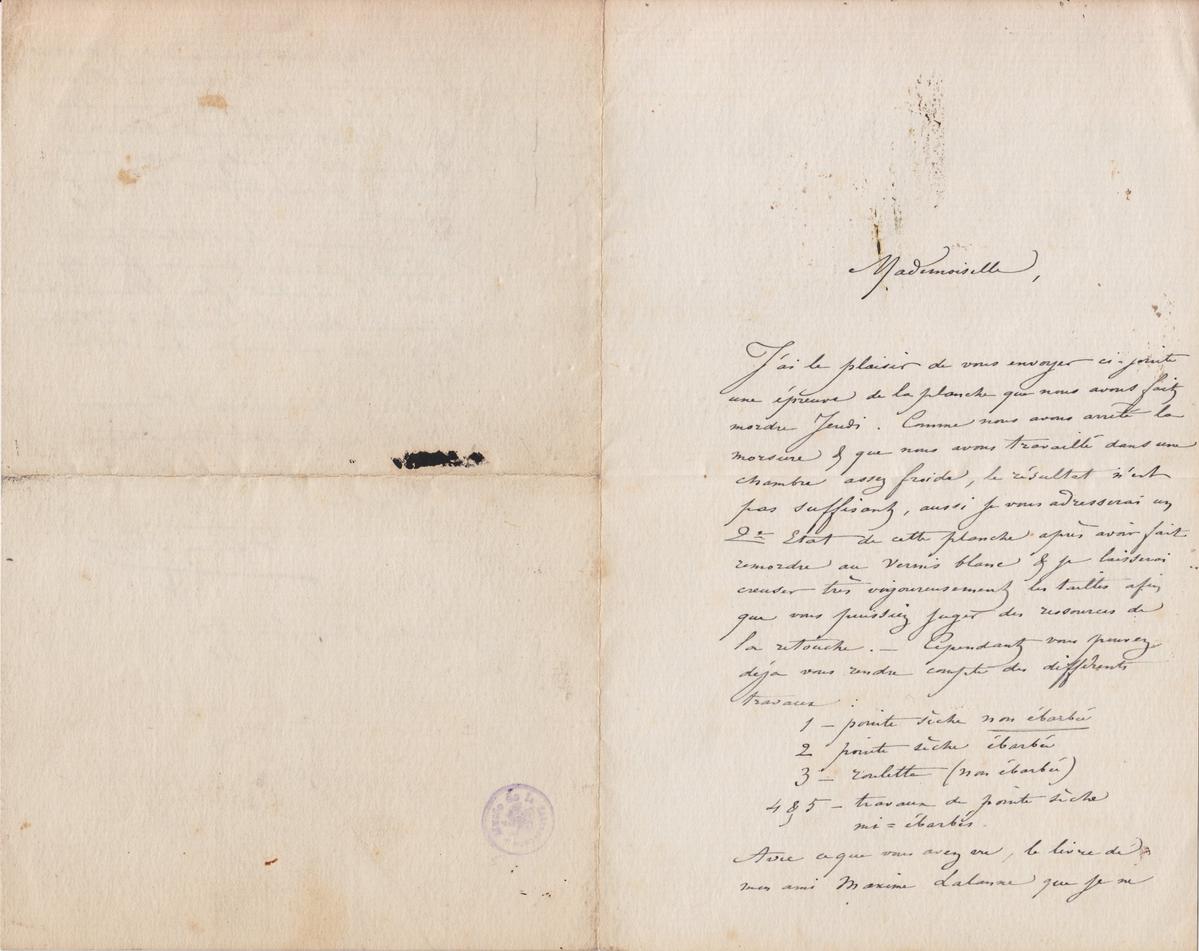 Mademoiselle,
J'ai le plaisir de vous envoyer ci-jointe
une épreuve de la planche que nous avons fait
mordre Jeudi. Comme nous avons arrêté la
morsure & que nous avons travaillé dans une
chambre assez froide, le résultat n'est
pas suffisant, aussi je vous adresserai un
2e Etat de cette planche après avoir fait
remordre au vernis blanc & je laisserai
creuser très vigoureusement les tailles afin
que vous puissiez juger des ressources de
la retouche. — Cependant vous pouvez
déjà vous rendre compte des différents
travaux :
1 — pointe sèche non ébarbée
2 pointe sèche ébarbée
3 — roulette (non ébarbée)
4 & 5 — travaux de pointe sèche
mi = ébarbés.
Avec ce que vous avez vu, le livre de
mon ami Maxime Lalanne que je ne